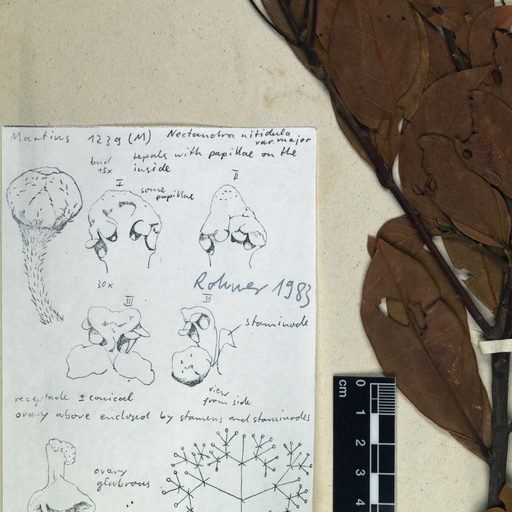 Martius 1239 (M) Nectandra nitidula
var. major
bud
15x
tepals with papillae on the
inside
I
some
papillae
II
30x
Rohwer 1983
III
III
staminode
view
from side
receptacle ± conical
ovary above enclosed by stamens and staminodes
ovary
glabrous
cm
0
1
2
3
4